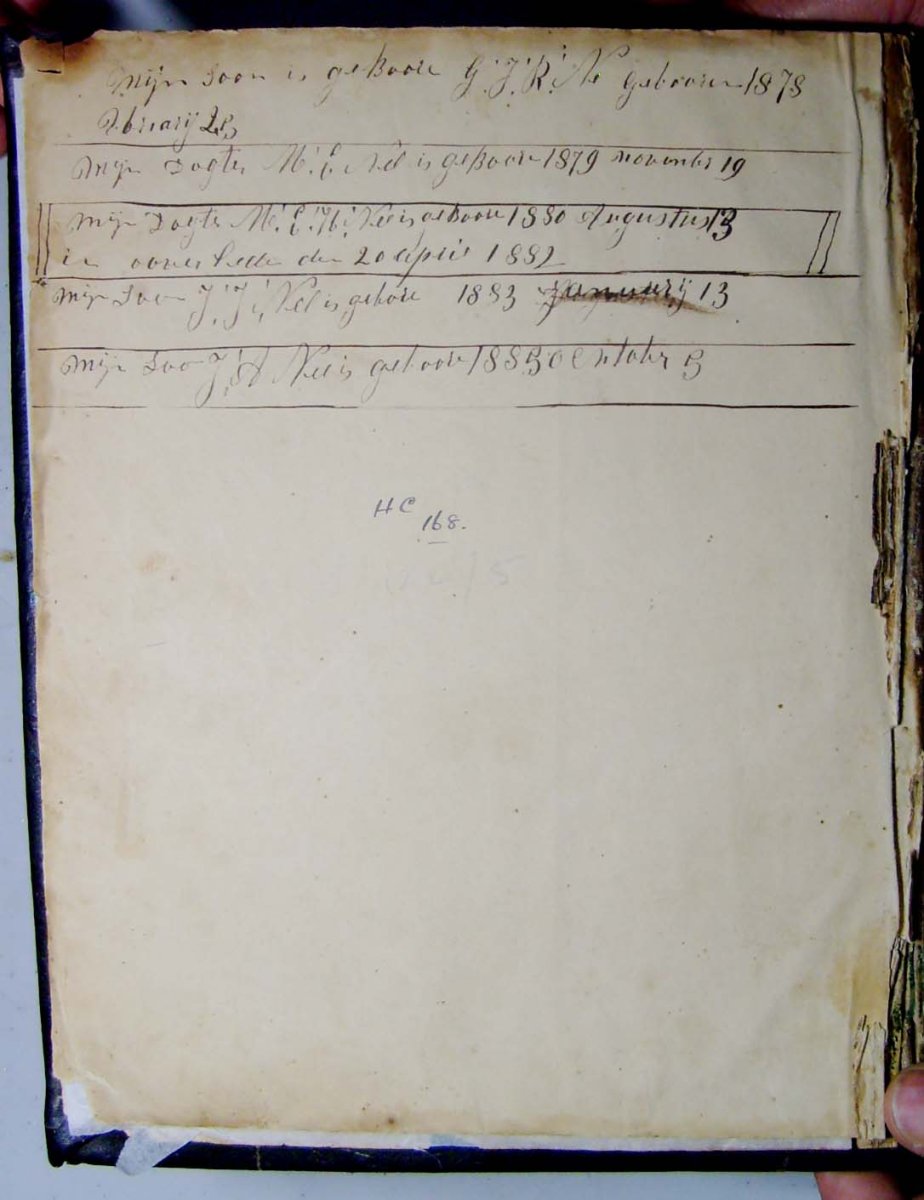 Mijn Soon is geboore G. J. R. Ne Geboore 1878
Februarij
Mijn Dogter M. E. Nel is geboore 1879 november 19
Mijn Dogter M. E. H. Nel is geboore 1880 Augustus 13
is ooverlede den 20 april 1882
Mijn Soon J. J. Nel is gebore 1883 Januarij 13
Mijn Soo J. A Nel is geboore 1885 Octobr 3
HC
168.